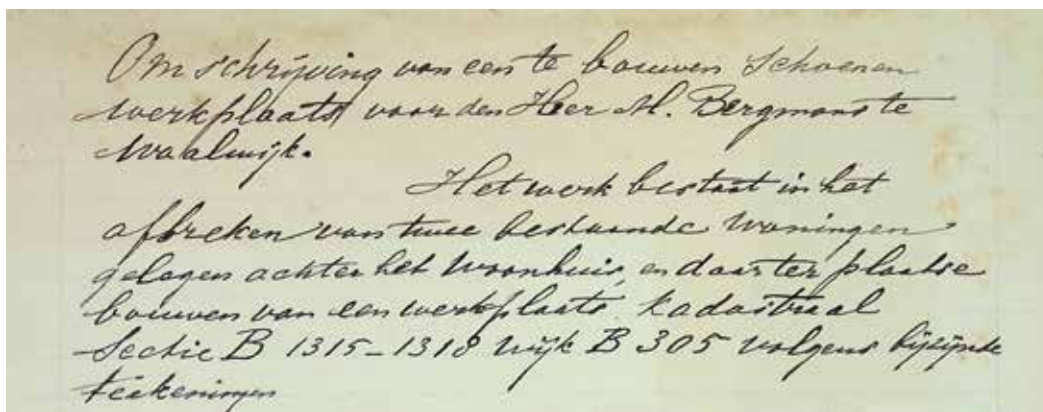 Omschrijving van een te bouwen Schoenen
werkplaats voor den Heer M. Bergmans te
Waalwijk.
Het werk bestaat in het
afbreken van twee bestaande Woningen
gelegen achter het Woonhuis, en daar ter plaatse
bouwen van een werkplaats. Kadastraal
Sectie B 1315-1318 Wijk B 305 volgens bijzijnde
teekeningen